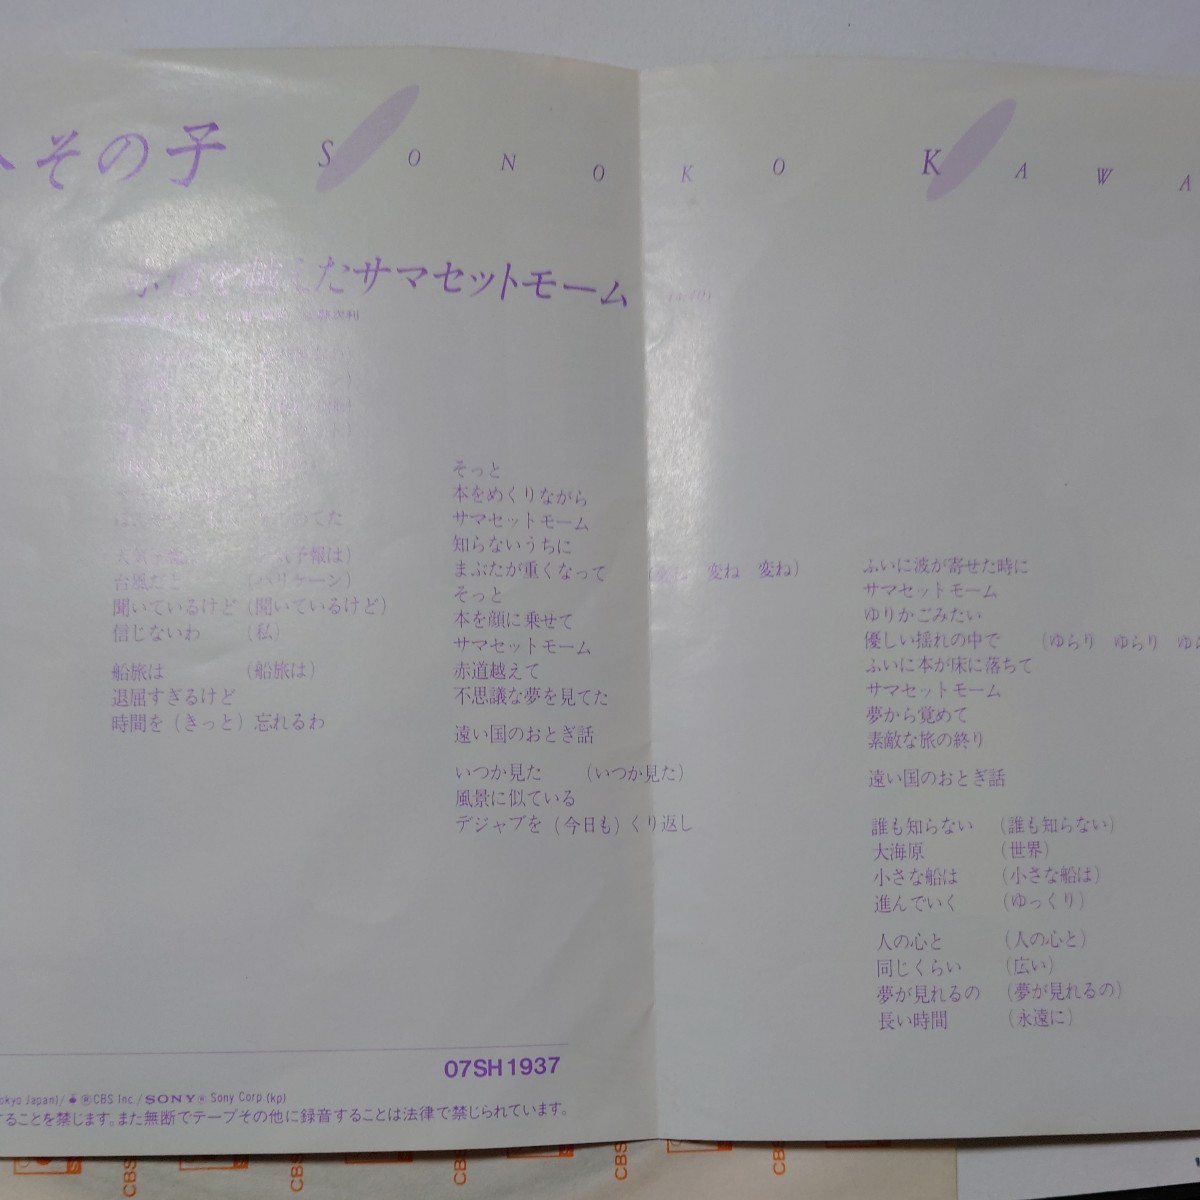 その子 SONOKO KAWA
越えたサマセットモーム
てた
予報は)
台風だと (ハリケーン)
聞いているけど (聞いているけど)
信じないわ (私)
船旅は (船旅は)
退屈すぎるけど
時間を (きっと) 忘れるわ
そっと
本をめくりながら
サマセットモーム
知らないうちに
まぶたが重くなって 変ね 変ね)
そっと
本を顔に乗せて
サマセットモーム
赤道越えて
不思議な夢を見てた
遠い国のおとぎ話
いつか見た (いつか見た)
風景に似ている
デジャブを (今日も) くり返し
ふいに波が寄せた時に
サマセットモーム
ゆりかごみたい
優しい揺れの中で (ゆらり ゆらり ゆ
ふいに本が床に落ちて
サマセットモーム
夢から覚めて
素敵な旅の終り
遠い国のおとぎ話
誰も知らない (誰も知らない)
大海原 (世界)
小さな船は (小さな船は)
進んでいく (ゆっくり)
人の心と (人の心と)
同じくらい (広い)
夢が見れるの (夢が見れるの)
長い時間 (永遠に)
07SH1937
okyo Japan)/ ®CBS Inc./SONY® Sony Corp.(kp)
することを禁じます。また無断でテープその他に録音することは法律で禁じられています。
CBS
CBS
CBS
CBS
CBS